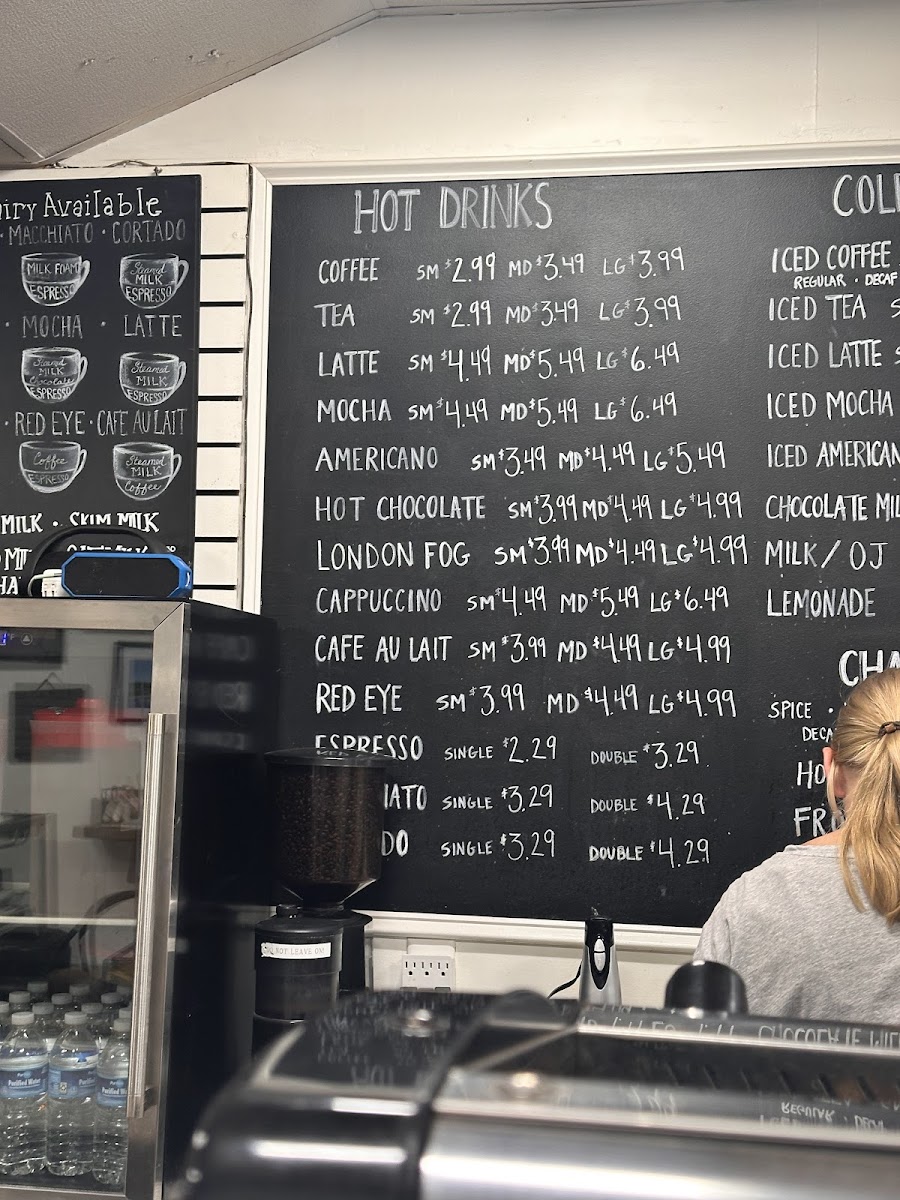 airy Available
· MACCHIATO · CORTADO
MILK FOAM
ESPRESSO
Steamed
MILK
ESPRESSO
· MOCHA · LATTE
Steamed
MILK
Chocolate
ESPRESSO
Steamed
MILK
ESPRESSO
· RED EYE · CAFE AU LAIT
Coffee
ESPRESSO
Steamed
MILK
Coffee
MILK · SKIM MILK
HOT DRINKS
COFFEE SM $2.99 MD $3.49 LG $3.99
TEA SM $2.99 MD $3.49 LG $3.99
LATTE SM $4.49 MD $5.49 LG $6.49
MOCHA SM $4.49 MD $5.49 LG $6.49
AMERICANO SM $3.49 MD $4.49 LG $5.49
HOT CHOCOLATE SM $3.99 MD $4.49 LG $4.99
LONDON FOG SM $3.99 MD $4.49 LG $4.99
CAPPUCCINO SM $4.49 MD $5.49 LG $6.49
CAFE AU LAIT SM $3.99 MD $4.49 LG $4.99
RED EYE SM $3.99 MD $4.49 LG $4.99
ESPRESSO SINGLE $2.29 DOUBLE $3.29
IATO SINGLE $3.29 DOUBLE $4.29
DO SINGLE $3.29 DOUBLE $4.29
COL
ICED COFFEE
REGULAR · DECAF
ICED TEA S
ICED LATTE S
ICED MOCHA
ICED AMERICAN
CHOCOLATE MIL
MILK / OJ
LEMONADE
CHA
SPICE ·
DECA
HO
FR
NOT LEAVE ON
Purified Water
Purified Water